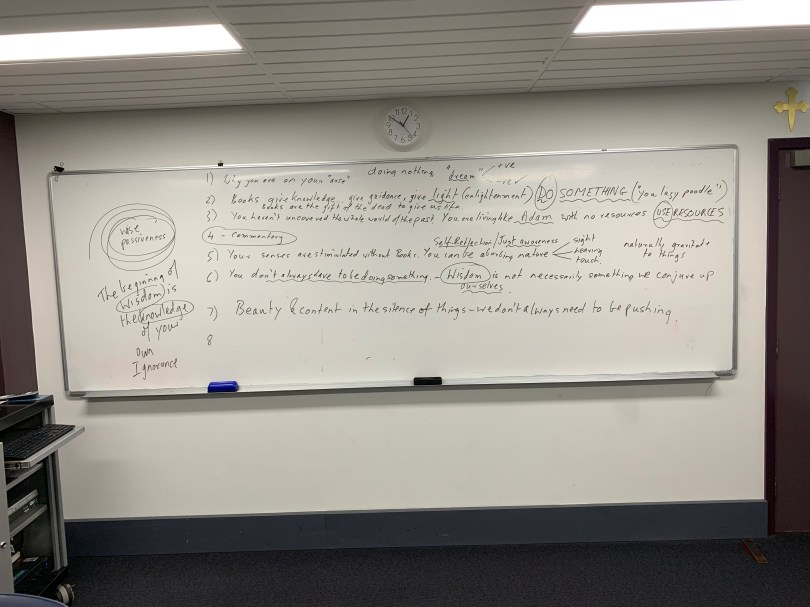 wise
passiveness
The beginning of
Wisdom is
the knowledge
of your
own
Ignorance
1) Why you are on your "arse" doing nothing "dream" +ve
-ve
2) Books give knowledge, give guidance, give light (enlightenment) DO SOMETHING ("you lazy poodle")
books are the gift of the dead to give us life
3) You haven't uncovered the whole world of the past You are living like Adam with no resources USE RESOURCES
4 - Commentary
Self-Reflection/Just awareness
5) Your senses are stimulated without Books. You can be absorbing nature sight
hearing
touch
naturally gravitate
to things
6) You don't always have to be doing something. - Wisdom is not necessarily something we conjure up
ourselves
7) Beauty & content in the silence of things - we don't always need to be pushing.
8